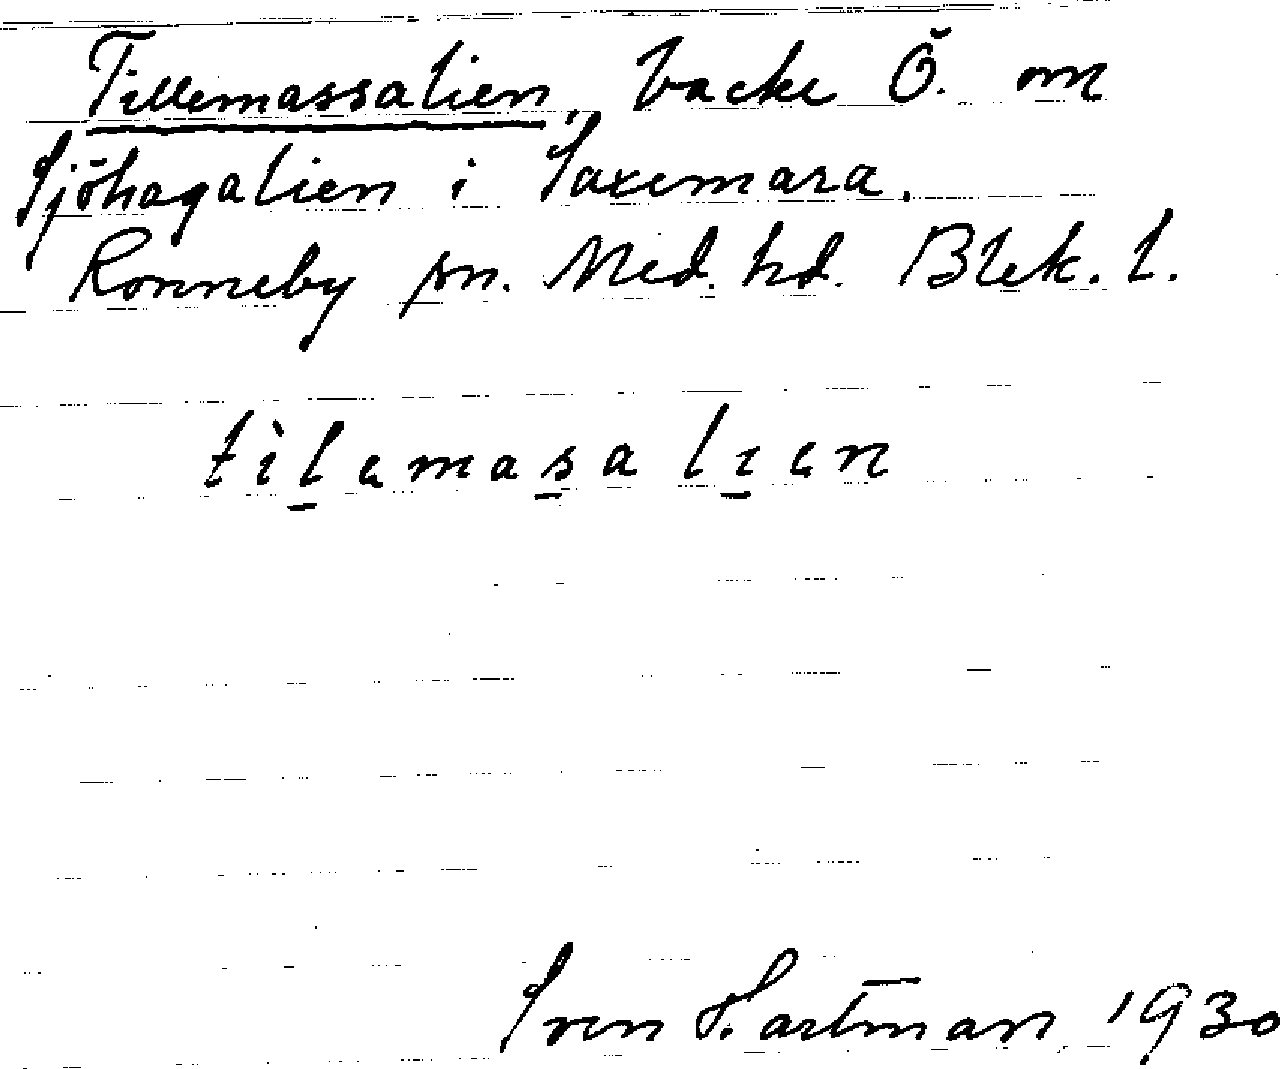 Tillemassalien, backe Ö. om
Sjöhagalien i Saxemara.
Ronneby sn. Med. hd. Blek. l.
tìlemasalien
Sven Hartman 1930